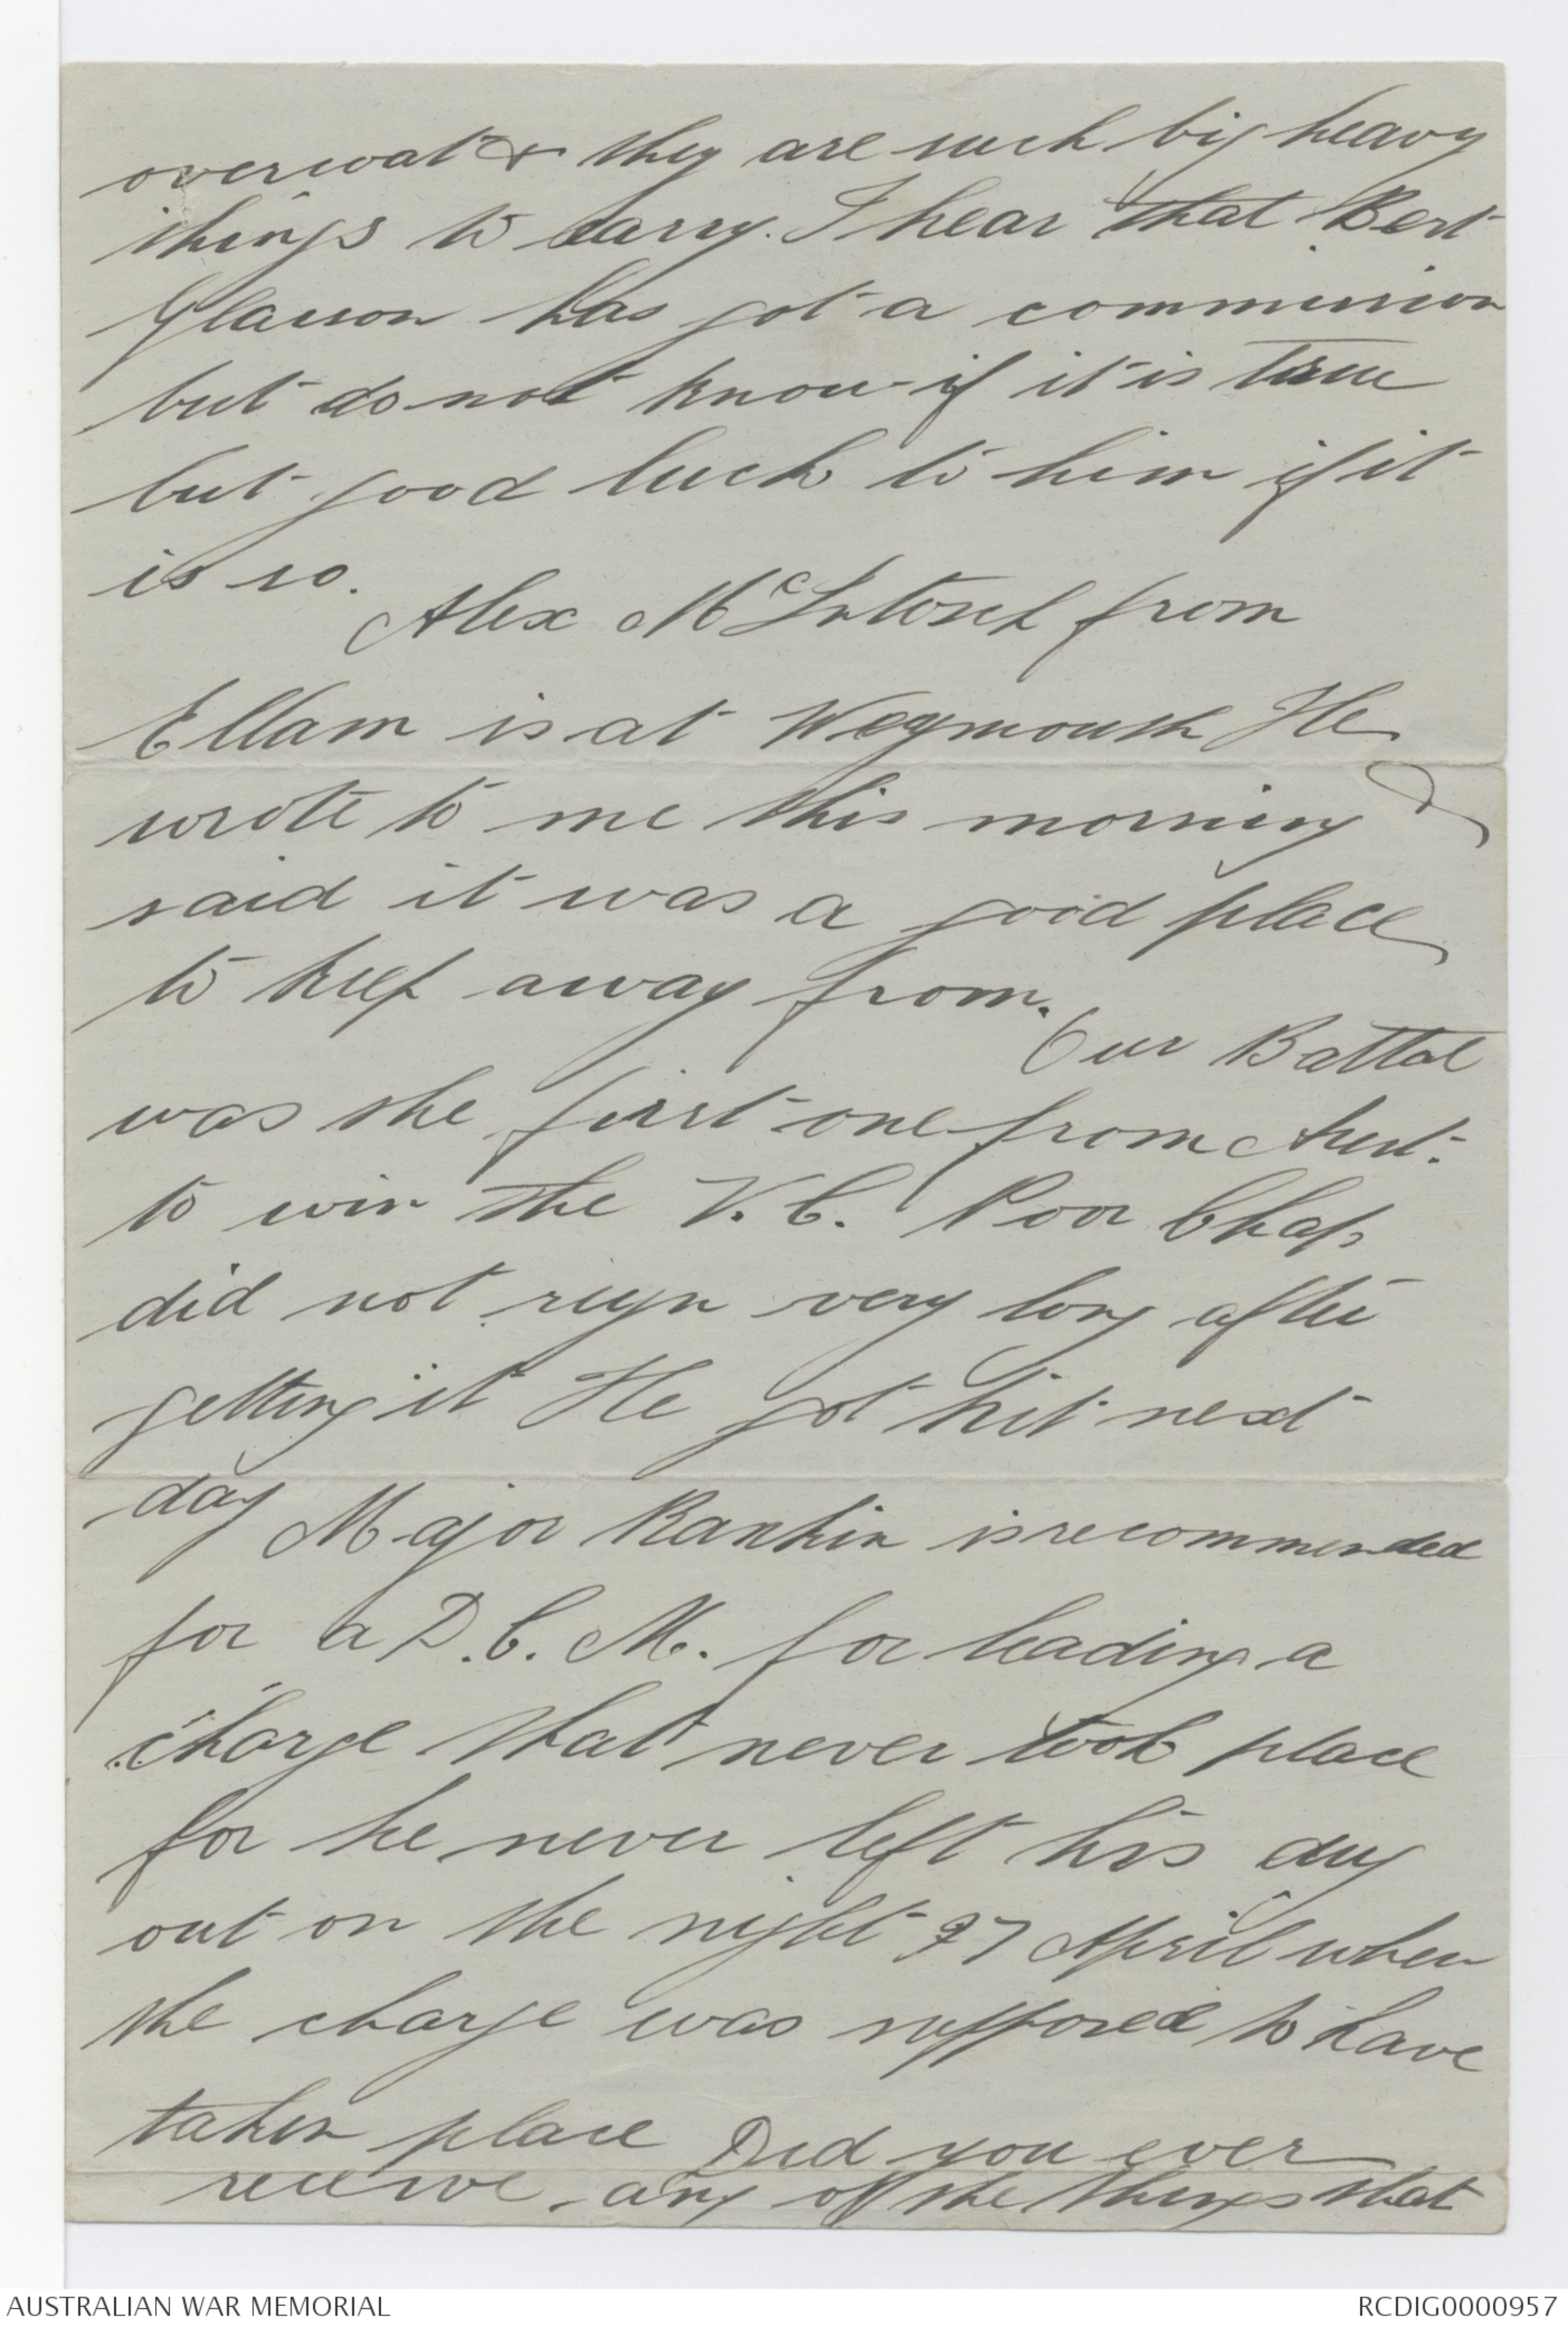 overcoat & they are such big heavy
things to carry. I hear that Bert
Glasson has got a commission
but do not know if it is true
but good luck to him if it
is so.
Alex McIntosh from
Ellam is at Weymouth He
wrote to me this morning &
said it was a good place
to keep away from.
Our Battal
was the first one from Aust.
to win the V.C. Poor Chap
did not reign very long after
getting it He got hit next
day
Major Rankin is recommended
for a D.C.M. for leading a
charge that never took place
for he never left his dug
out on the night 27 April when
the charge was supposed to have
taken place Did you ever
receive any off the things that
AUSTRALIAN WAR MEMORIAL
RCDIG0000957